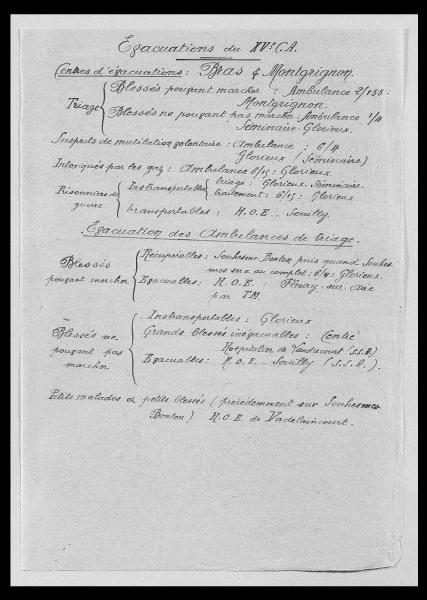 Evacuations du XVe C.A.
Centres d'évacuations : Bras & Montgrignon.
Triage
Blessés pouvant marcher : Ambulance 2/155 :
Montgrignon.
Blessés ne pouvant pas marcher : Ambulance 1/4
Séminaire-Glorieux.
Suspects de mutilation volontaire : Ambulance : 6/4
Glorieux (Séminaire)
Intoxiqués par les gaz : Ambulance 6/15 : Glorieux.
Prisonniers de
guerre
Instransportables
triage : Glorieux. Séminaire.
traitement : 6/15 : Glorieux
transportables : H.O.E – Souilly.
Evacuation des Ambulances de triage.
Blessés
pouvant marcher
Récupérables : Souhesmes puis quand Souhes-
mes sera au complet : 6/4 : Glorieux.
Evacuables : H.O.E : Fleury-sur-Aire
par
Blessés ne
pouvant pas
marcher
Instransportables : Glorieux
Grands blessés inévacuables : Centre
Hospitalier de Vandrecourt (S.S.A)
Evacuables : H.O.E – Souilly (S.S.A).
Petits malades et petits blessés (précédemment sur Souhesmes
H.O.E de Vadelaincourt.